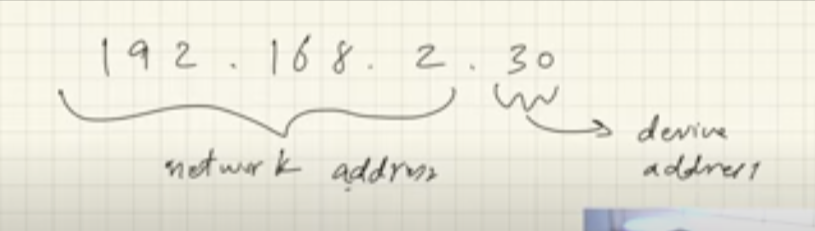 192.168.2.30
network address
device
address